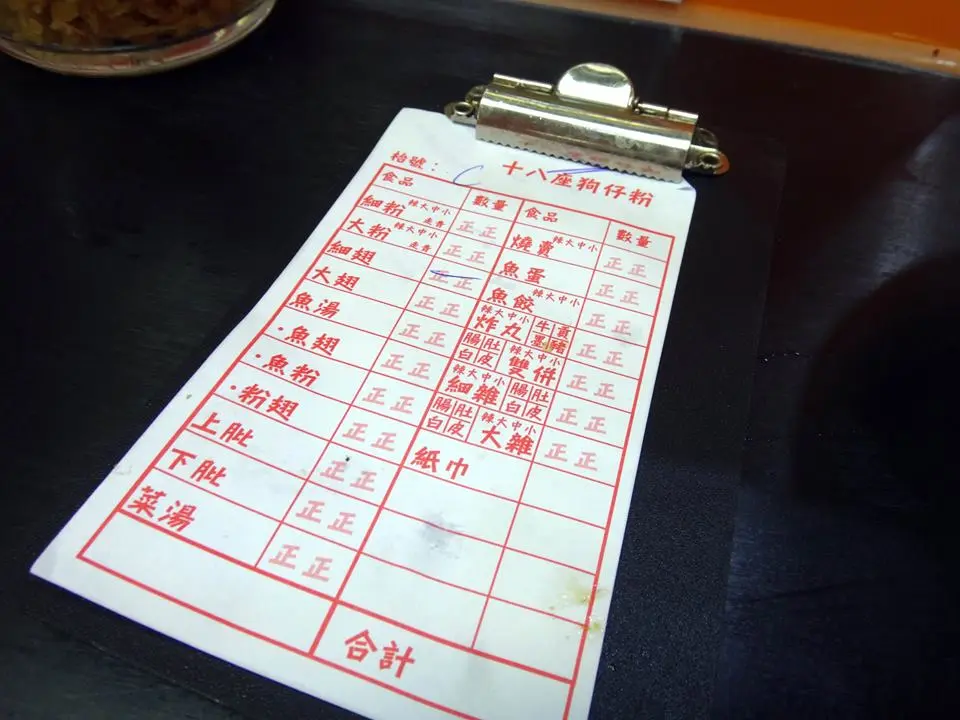 十八座狗仔粉
枱號： C
食品 數量 食品 數量
細粉 辣大中小 走青 正正
大粉 辣大中小 走青 正正
細翅 正正
大翅 正正
魚湯 正正
·魚翅 正正
·魚粉 正正
·粉翅 正正
上肶 正正
下肶 正正
菜湯 正正
燒賣 辣大中小 正正
魚蛋 正正
魚餃 辣大中小
炸丸 辣大中小 牛 貢 墨 豬 正正
腸 肚 白 皮 雙併 辣大中小 正正
細雜 辣大中小 腸 肚 白 皮 正正
腸 肚 白 皮 大雜 辣大中小 正正
紙巾
合計